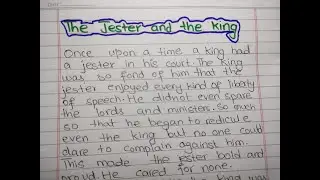 The Jester and the King
Once upon a time a king had
a jester in his court. The king
was so fond of him that the
jester enjoyed every kind of liberty
of speech. He didnot even spare
the lords and ministers. So much
so that he began to redicule
even the king but no one could
dare to complain against him.
This made the jester bold and
proud. He cared for none.
the king was